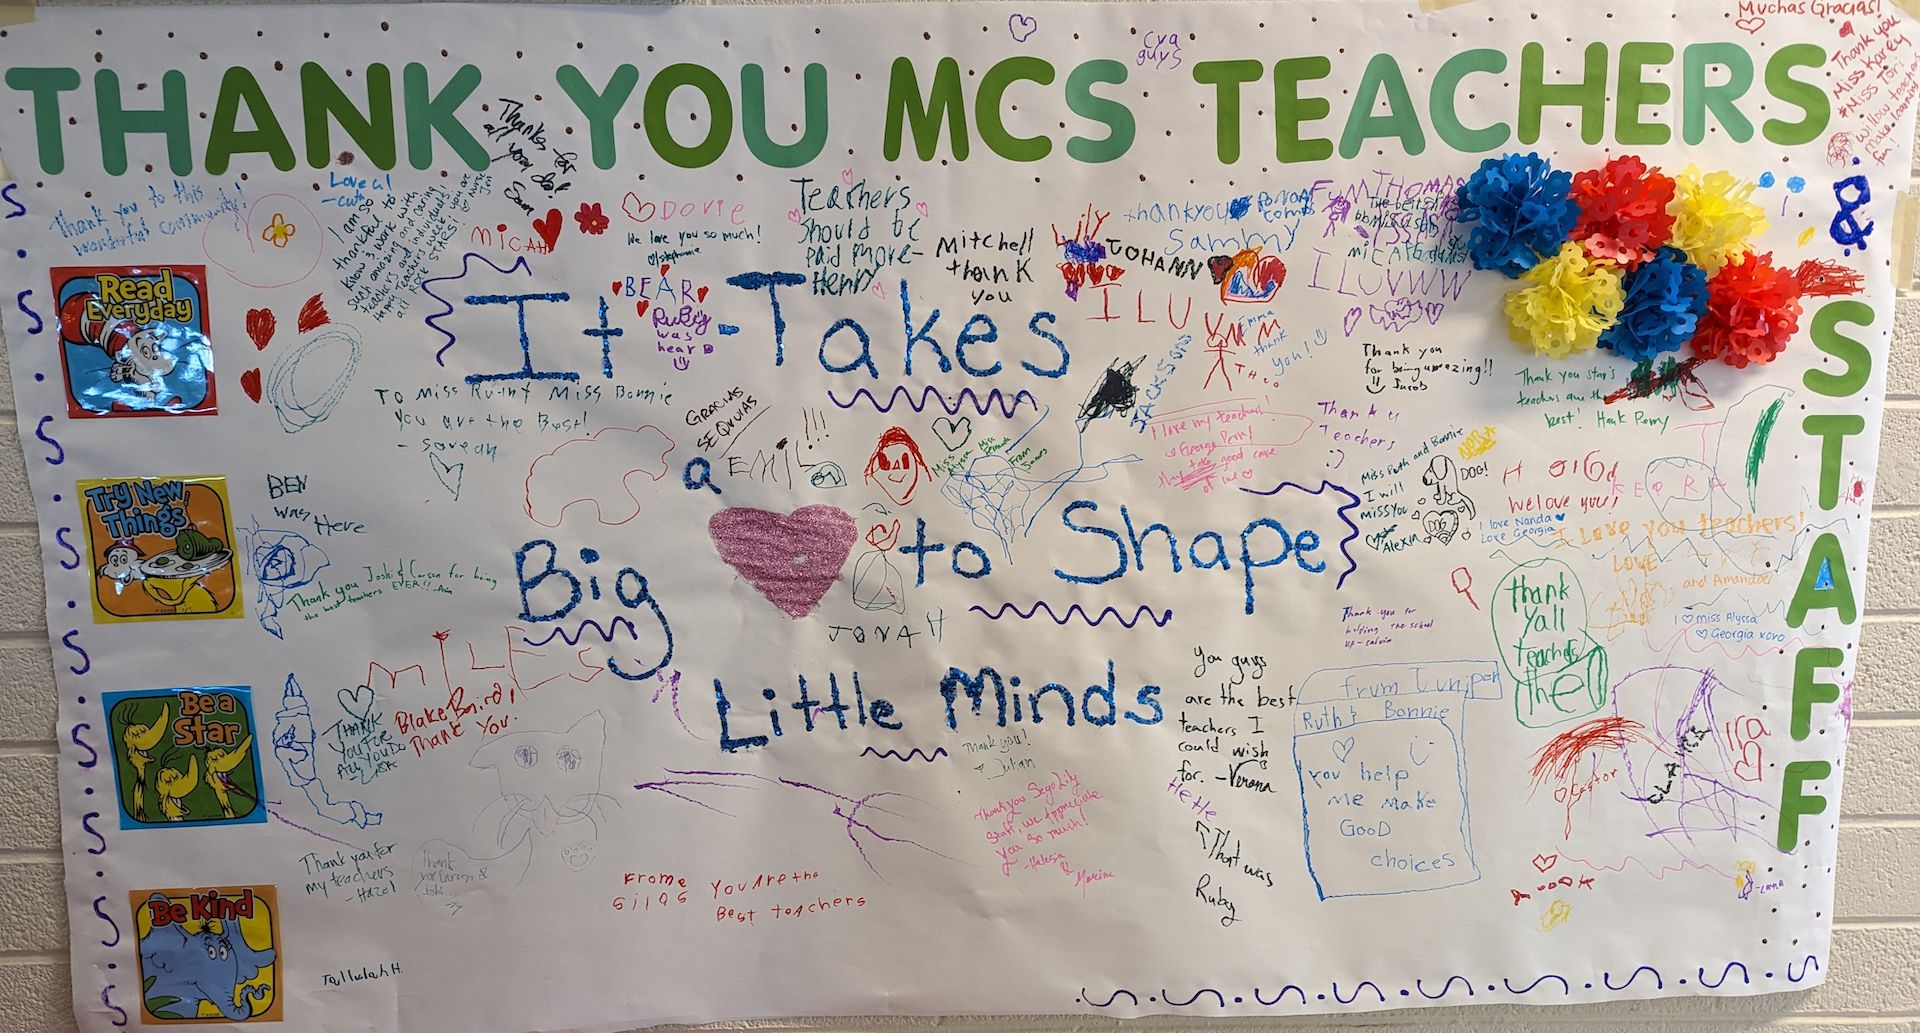 THANK YOU MCS TEACHERS
&
STAFF
It Takes
a
Big
to Shape
Little Minds
Read
Everyday
Try New
Things
Be a
Star
Be Kind
Muchas Gracias!
Thank you
Miss Karey
Miss Tori
Willow teacher
make learning
fun!
guys
Thank you to this
wonderful community!
I am so
thankful to
know & work with
such amazing and caring
teachers and individuals!
Thanks for
all you do!
Sam
MICAH
DOVIE
We love you so much!
BEAR
Ruby
was
hear
Teachers
Should be
paid more-
Henry
Mitchell
thank
you
Lily
JOHANN
ILU
thankyou
Sammy
Emma
thank
you!
THeo
JACKSON
ILUVWW
Thank you
for being amazing!!
Jacob
Thank you star's
teachers are the
best! Hank Perry
To Miss Ru-int Miss Bonnie
You are the Best!
GRACIAS
EMIL !!!
Miss
Alyssa
From
James
I love my teachers!
George Perry
good care
of me
Thank u
Teachers
:)
NORA
Miss Ruth and Bonnie
I will
miss you
Alexin
DOG!
DOG
We love you!
KEORA
I love Nanda
Love Georgia
I Love you teachers!
LOVE
and Amandae
I miss Alyssa
Georgia xoxo
BEN
was Here
Thank you Joshi & Carson for being
the best teachers EVER!!
JONAH
Thank you for
holding the school
up - calvin
thank
Yall
teachers
the!
MILES
THANK
You For
All You Do
Blake Baird,
Thank You.
Thank you!
Julian
You guys
are the best
teachers I
could wish
for. - Verona
HeHe
That was
Ruby
from Juniper
Ruth & Bonnie
you help
me make
GooD
choices
Ira
Castor
CLAIRE
Thank you Sego Lily
Staff, we appreciate
you so much!
Thank you for
my teachers
- Hazel
Thank
you Carson &
Joshi
From e
Silas
You Are the
Best teachers
-LAYLA
Tallulah H.